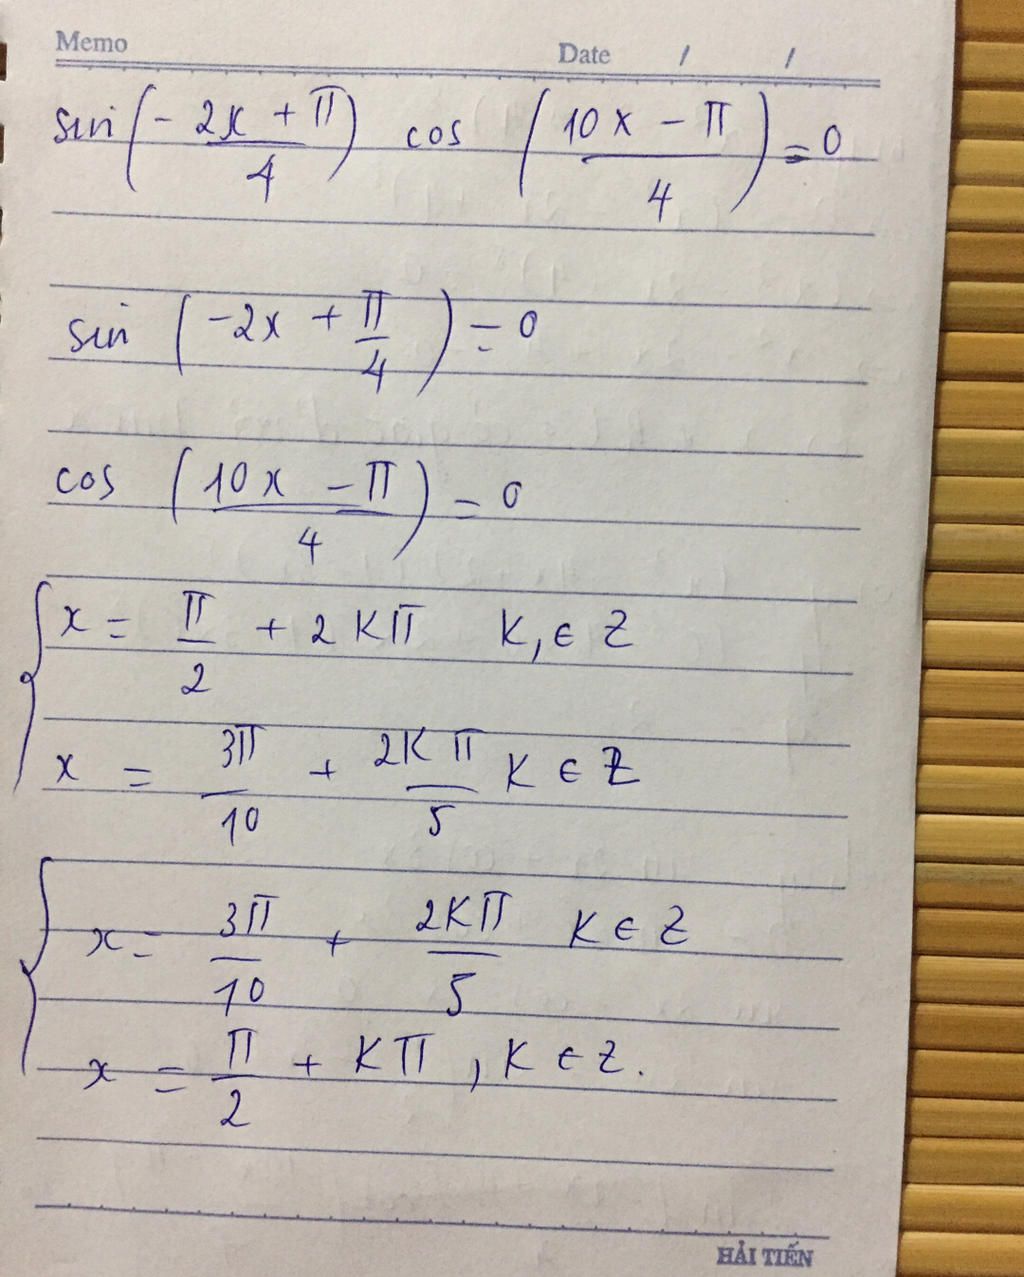 Memo Date / /
sin(\frac{-2x + π}{4}) cos(\frac{10x - π}{4}) = 0
sin(-2x + \frac{π}{4}) = 0
cos(\frac{10x - π}{4}) = 0
x = \frac{π}{2} + 2Kπ K, ∈ Z
x = \frac{3π}{10} + \frac{2Kπ}{5} K ∈ Z
x = \frac{3π}{10} + \frac{2Kπ}{5} K ∈ Z
x = \frac{π}{2} + Kπ, K ∈ Z.
HẢI TIẾN